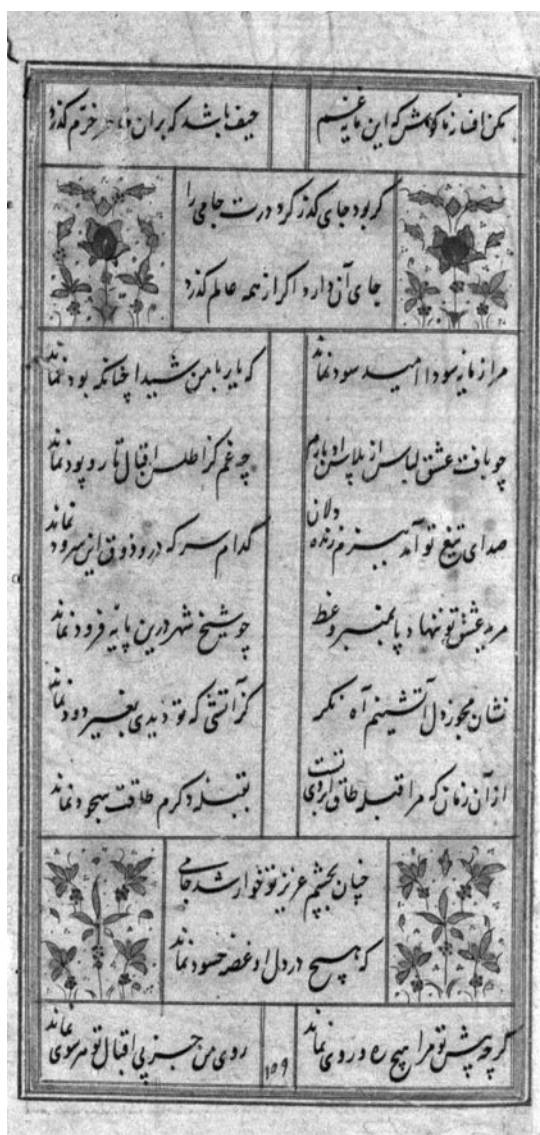 مکن افسانه ما کوش که این مایه غم حیف باشد که بران خاطر خرم کذرد
کر بود جای کذر کرد درت جامی را
جای آن دارد اکر از همه عالم کذرد
مرا ز مایه سودا امید سود نماند که یار با من شیدا چنانکه بود نماند
چو بافت عشق لباس از پلاس ادبارم چه غم کز اطلس اقبال تار و پود نماند
صدای تیغ تو آمد ببزم زنده دلان کدام سر که درو ذوق این سرود نماند
مرید عشق تو ننهاد پا بمنبر وعظ چو شیخ شهر درین پایه فرود نماند
نشان مجو ز دل آتشینم آه نکر کز آتشی که تو دیدی بغیر دود نماند
از آن زمان که مرا قبله طاق ابروی تست بقبله دکرم طاقت سجود نماند
چنان بچشم عزیز تو خوار شد جامی
که هیچ در دل او غصه حسود نماند
کرچه پیش تو مرا هیچ ره و روی نماند روی من جز پی اقبال تو هر سوی نماند
۱۵۹